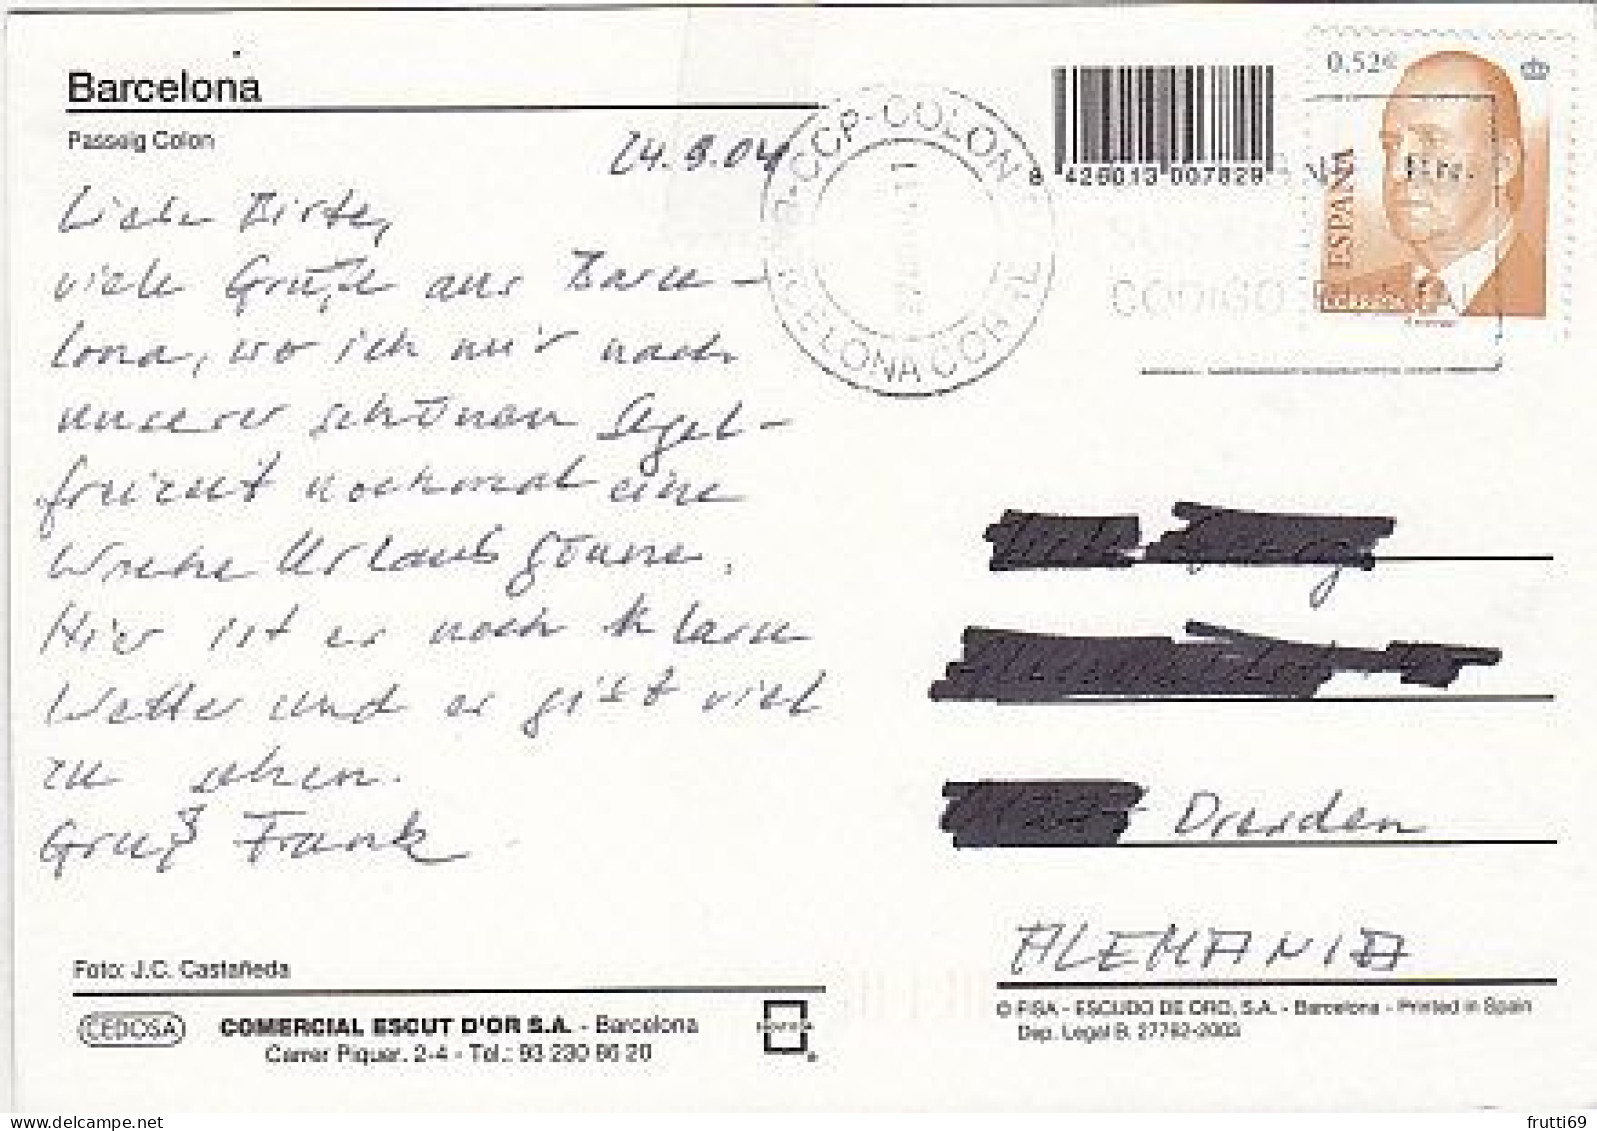 Barcelona
Passeig Colon
24.9.04
Liebe Birte,
viele Grüße aus Barce-
lona, wo ich mir nach
unserer schönen Segel-
freizeit nochmal eine
Woche Urlaub gönne.
Hier ist es noch klasse
Wetter und es gibt viel
zu sehen.
Gruß Frank
Foto: J.C. Castañeda
CEDOSA
COMERCIAL ESCUT D'OR S.A. - Barcelona
Carrer Piquer, 2-4 - Tel.: 93 230 86 20
CCP-COLON
BARCELONA
8 426013 007829
CODIGO
0.52€
ESPAÑA
CORREOS
Dresden
ALEMANIA
© FISA - ESCUDO DE ORO, S.A. - Barcelona - Printed in Spain
Dep. Legal B. 27782-2003
frutti69